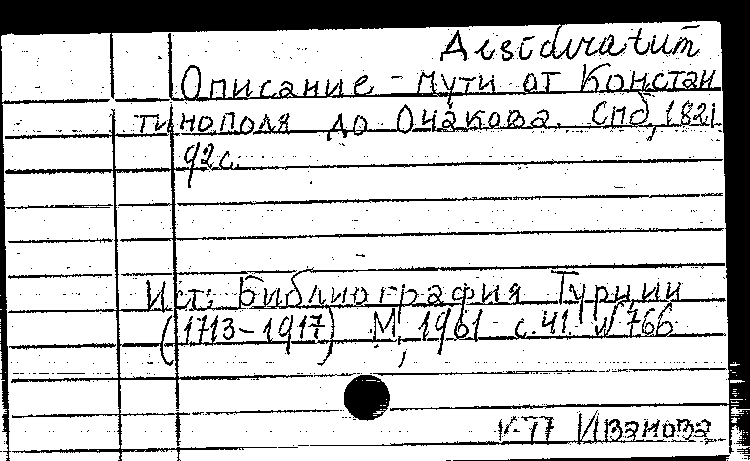 Desideratum
Описание пути от Констан
тинополя до Очакова. Спб, 1821
92с.
Ист: Библиография Турции
(1713-1917) М, 1961 с.41 №766
V-77 Иванова